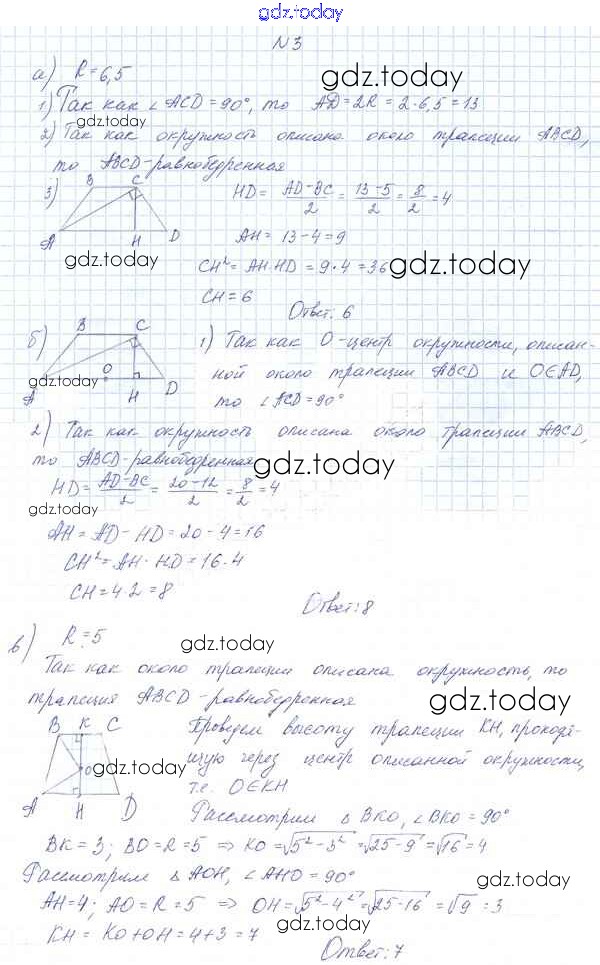 gdz.today
N 3
а) R = 6,5
gdz.today
1) Так как ∠ACD = 90°, то AD = 2R = 2·6,5 = 13
gdz.today
2) Так как окружность описана около трапеции ABCD,
то ABCD - равнобедренная
3) B C HD = AD-BC/2 = 13-5/2 = 8/2 = 4
A H D AH = 13-4 = 9
gdz.today
CH² = AH·HD = 9·4 = 36
gdz.today
CH = 6
Ответ: 6
б) B C 1) Так как O-центр окружности, описан-
gdz.today
ной около трапеции ABCD и O∈AD,
A O H D то ∠ACD = 90°
2) Так как окружность описана около трапеции ABCD,
то ABCD-равнобедренная
gdz.today
HD = AD-BC/2 = 20-12/2 = 8/2 = 4
gdz.today
AH = AD - HD = 20 - 4 = 16
CH² = AH · HD = 16·4
CH = 4·2 = 8
Ответ: 8
в) R = 5
gdz.today
Так как около трапеции описана окружность, то
трапеция ABCD - равнобедренная
gdz.today
B K C Проведем высоту трапеции KH, проходя-
щую через центр описанной окружности,
O
gdz.today
т.е. O∈KH
A H D
Рассмотрим △ BKO, ∠BKO = 90°
BK = 3; BO = R = 5 ⇒ KO = √5²-3² = √25-9 = √16 = 4
Рассмотрим △ AOH, ∠AHO = 90°
gdz.today
AH = 4; AO = R = 5 ⇒ OH = √5²-4² = √25-16 = √9 = 3
gdz.today
KH = KO + OH = 4+3 = 7
Ответ: 7